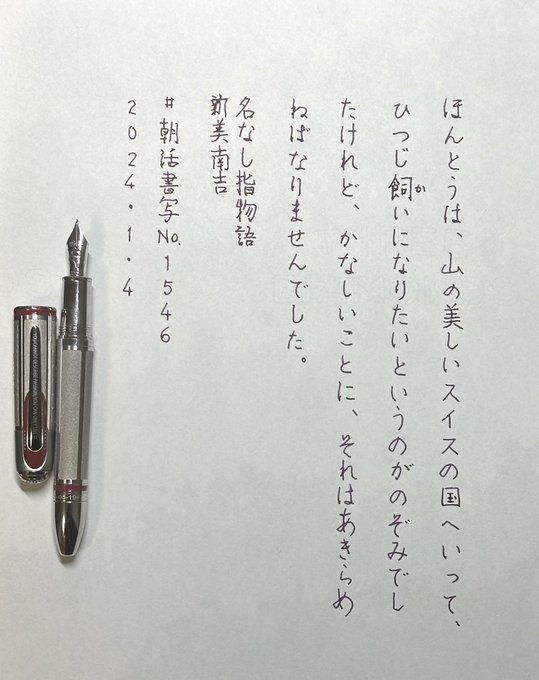 ほんとうは、山の美しいスイスの国へいって、
ひつじ飼いになりたいというのがのぞみでし
か
たけれど、かなしいことに、それはあきらめ
ねばなりませんでした。
名なし指物語
新美南吉
#朝活書写No.1546
2024.1.4